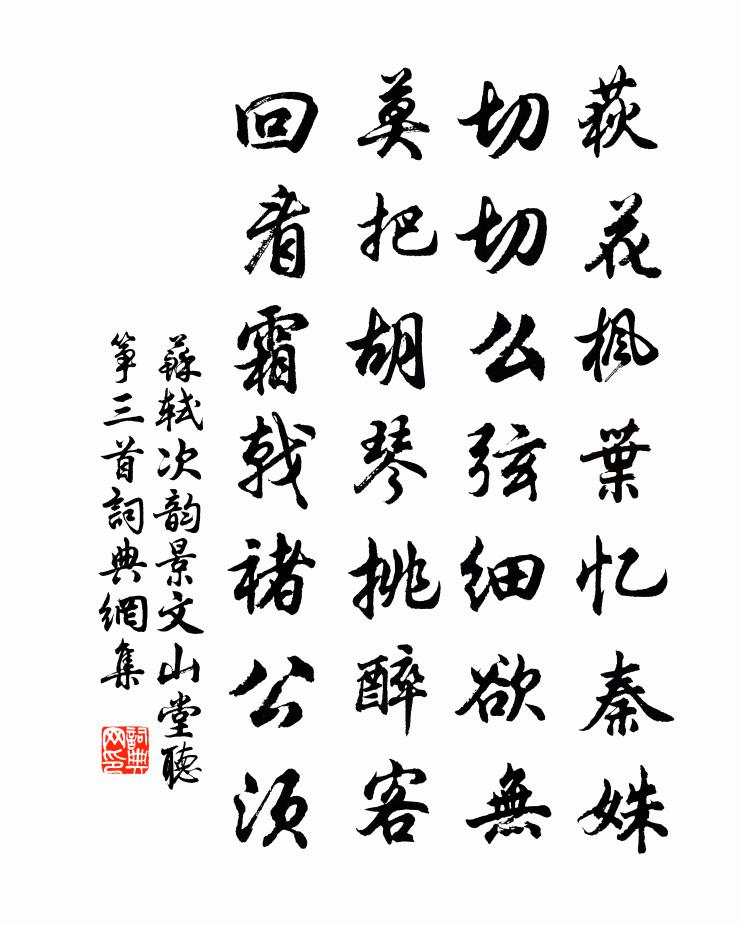 荻花枫葉忆秦姝
切切幺弦细欲無
莫把胡琴挑醉客
回看霜戟褚公须
蘇轼次韵景文山堂聽
筝三首詞典網集
詞典网印